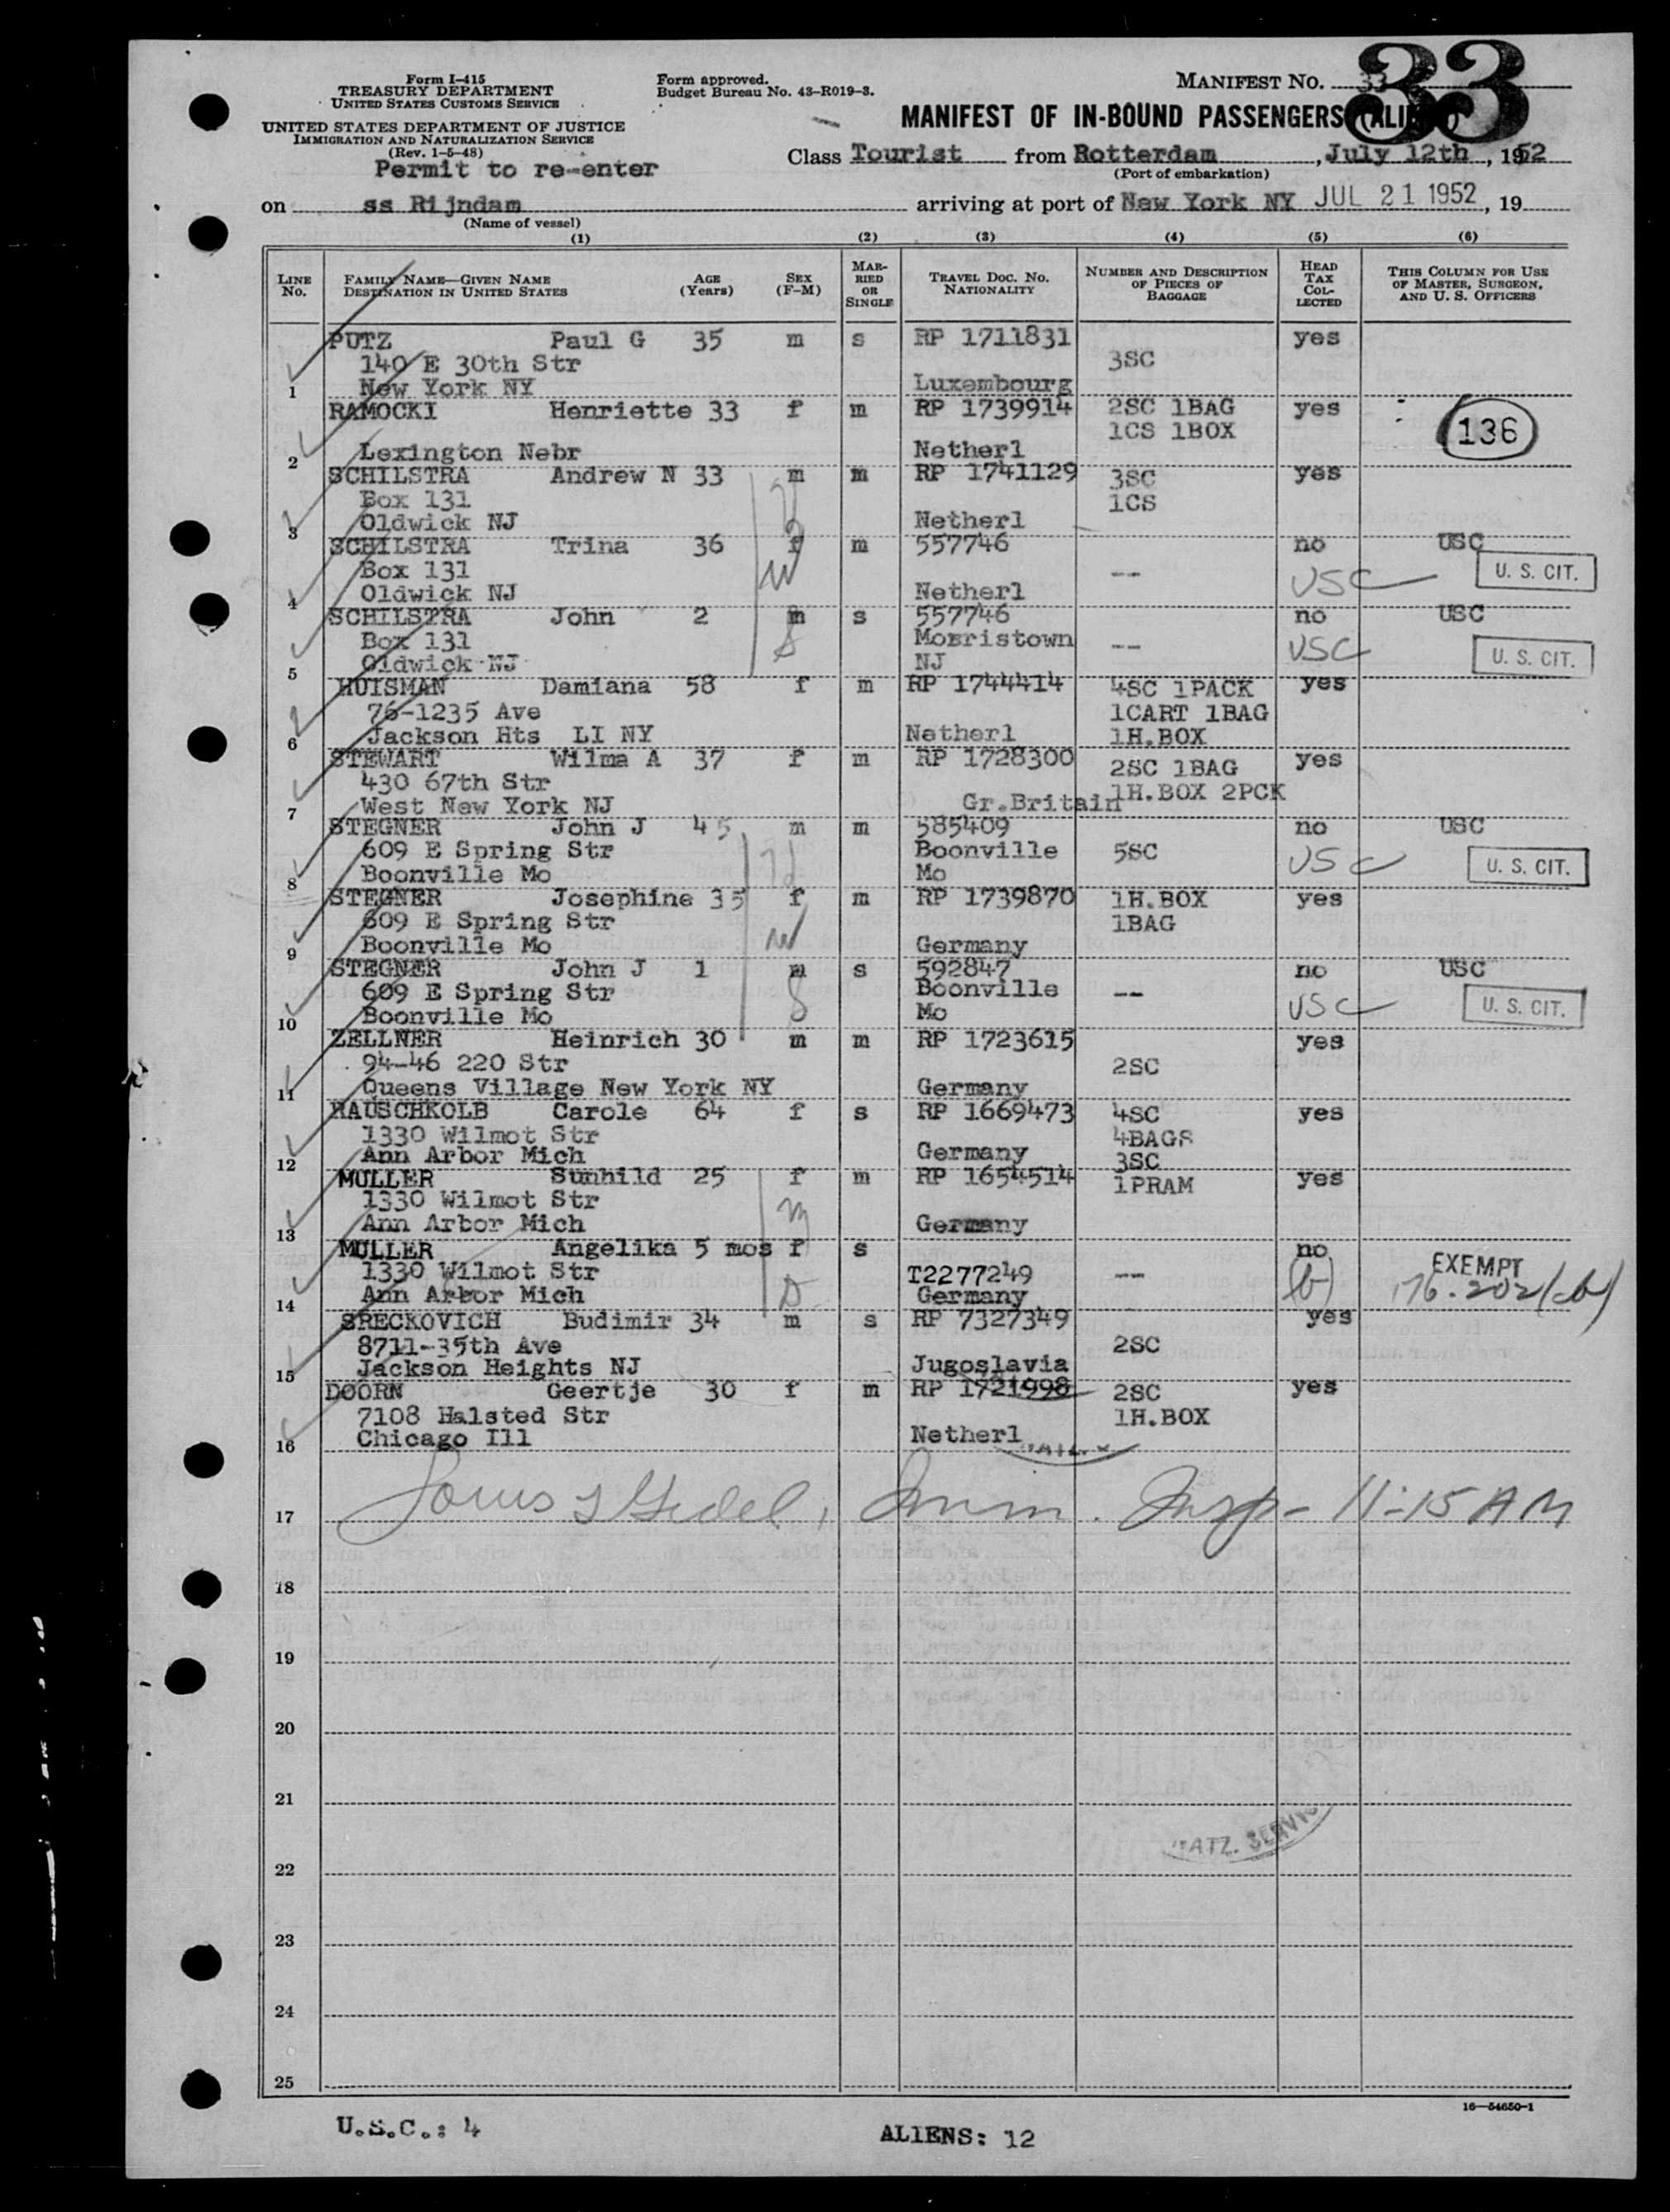 Form I-415
TREASURY DEPARTMENT
UNITED STATES CUSTOMS SERVICE
UNITED STATES DEPARTMENT OF JUSTICE
IMMIGRATION AND NATURALIZATION SERVICE
(Rev. 1-5-48)
Permit to re-enter
Form approved.
Budget Bureau No. 43-R019-3.
MANIFEST NO. 33
33
MANIFEST OF IN-BOUND PASSENGERS
Class Tourist from Rotterdam, July 12th, 1952
(Port of embarkation)
on ss Rijndam arriving at port of New York NY JUL 21 1952, 19
(Name of vessel)
(1) (2) (3) (4) (5) (6)
LINE No. FAMILY NAME—GIVEN NAME DESTINATION IN UNITED STATES AGE (Years) SEX (F-M) MARRIED OR SINGLE TRAVEL DOC. NO. NATIONALITY NUMBER AND DESCRIPTION OF PIECES OF BAGGAGE HEAD TAX COLLECTED THIS COLUMN FOR USE OF MASTER, SURGEON, AND U. S. OFFICERS
PUTZ Paul G 35 m s RP 1711831 yes
140 E 30th Str 3SC
1 New York NY Luxembourg
RAMOCKI Henriette 33 f m RP 1739914 2SC 1BAG yes
1CS 1BOX 136
2 Lexington Nebr Netherl
SCHILSTRA Andrew N 33 m m RP 1741129 3SC yes
Box 131 1CS
3 Oldwick NJ Netherl
SCHILSTRA Trina 36 f m 557746 no USC
Box 131 -- U. S. CIT.
4 Oldwick NJ W Netherl USC
SCHILSTRA John 2 m s 557746 no USC
Box 131 S Morristown -- USC U. S. CIT.
5 Oldwick NJ NJ
HUISMAN Damiana 58 f m RP 1744414 4SC 1PACK yes
76-1235 Ave 1CART 1BAG
6 Jackson Hts LI NY Netherl 1H.BOX
STEWART Wilma A 37 f m RP 1728300 2SC 1BAG yes
430 67th Str 1H.BOX 2PCK
7 West New York NJ Gr.Britain
STEGNER John J 45 m m 585409 no USC
609 E Spring Str Boonville 5SC USC U. S. CIT.
8 Boonville Mo Mo
STEGNER Josephine 35 f m RP 1739870 1H.BOX yes
609 E Spring Str 1BAG
9 Boonville Mo W Germany
STEGNER John J 1 m s 592847 no USC
609 E Spring Str S Boonville -- USC U. S. CIT.
10 Boonville Mo Mo
ZELLNER Heinrich 30 m m RP 1723615 yes
94-46 220 Str 2SC
11 Queens Village New York NY Germany
HAUSCHKOLB Carole 64 f s RP 1669473 4SC yes
1330 Wilmot Str 4BAGS
12 Ann Arbor Mich Germany 3SC
MULLER Sunhild 25 f m RP 1654514 1PRAM yes
1330 Wilmot Str M
13 Ann Arbor Mich Germany
MULLER Angelika 5 mos f s no
1330 Wilmot Str T2277249 -- (b) EXEMPT
14 Ann Arbor Mich D Germany 176.202(b)
SRECKOVICH Budimir 34 m s RP 7327349 yes
8711-35th Ave 2SC
15 Jackson Heights NJ Jugoslavia
DOORN Geertje 30 f m RP 1721998 2SC yes
7108 Halsted Str 1H.BOX
16 Chicago Ill Netherl
17 Imm. Insp- 11:15 AM
18
19
20
21
22 NATZ. SERVIC
23
24
25
16—54650-1
U.S.C.: 4 ALIENS: 12